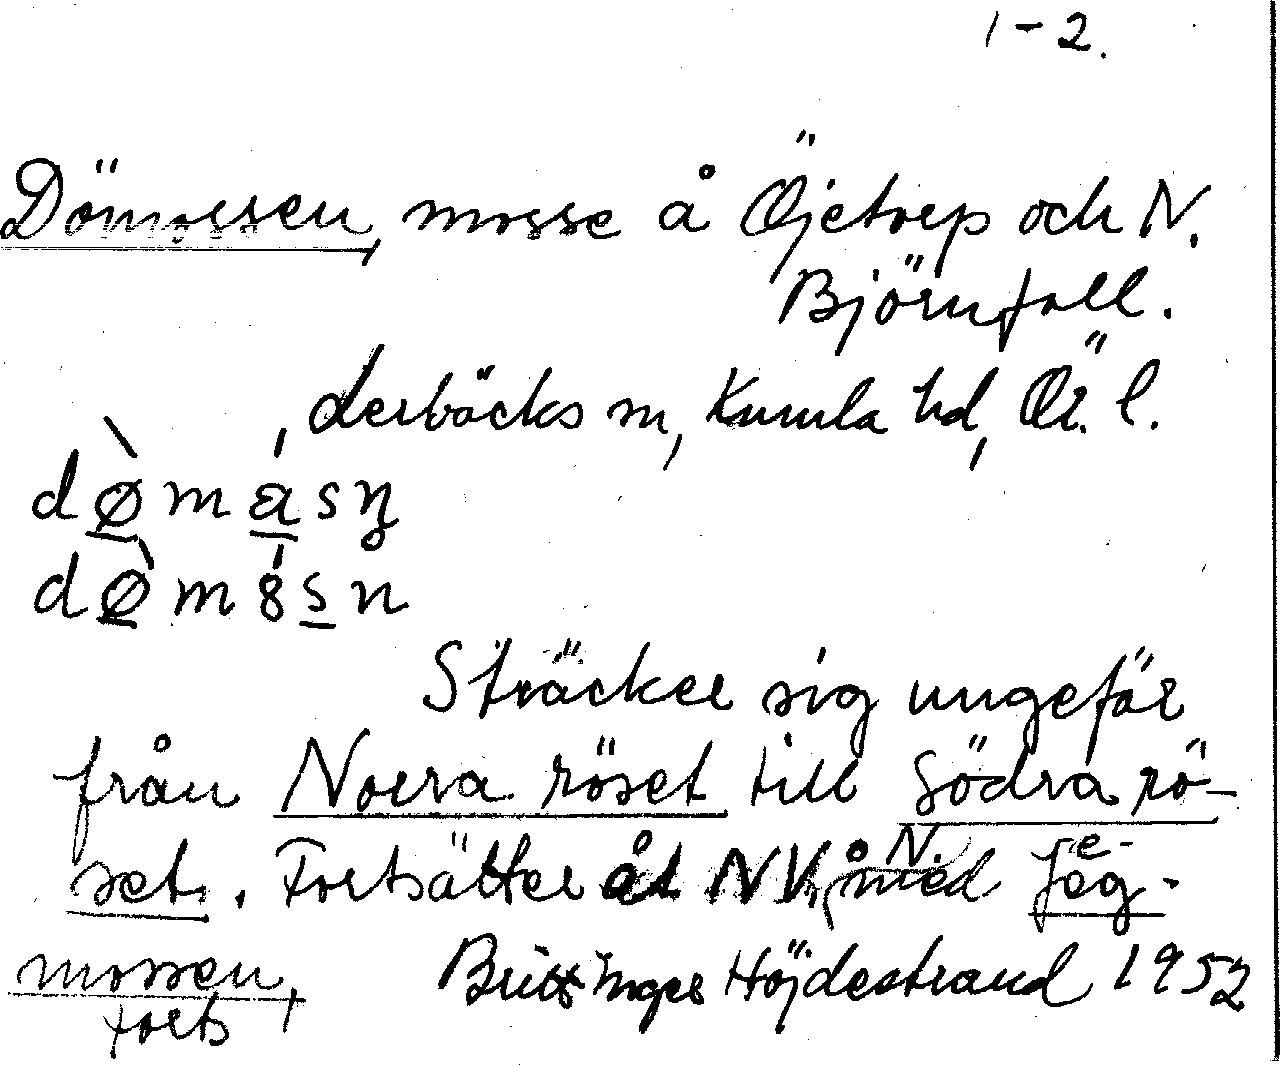 1-2.
Dömossen, mosse å Öjetorp och N.
Björnfall.
, Lerbäcks sn, Kumla hd, Ör. l.
dø̀másn̥
dø̀m8́sn
Sträcker sig ungefär
från Norra röset till Södra rö-
set. Fortsätter åt NV, N. Feg-
mossen,
forts
Britt Inger Höjdestrand 1952